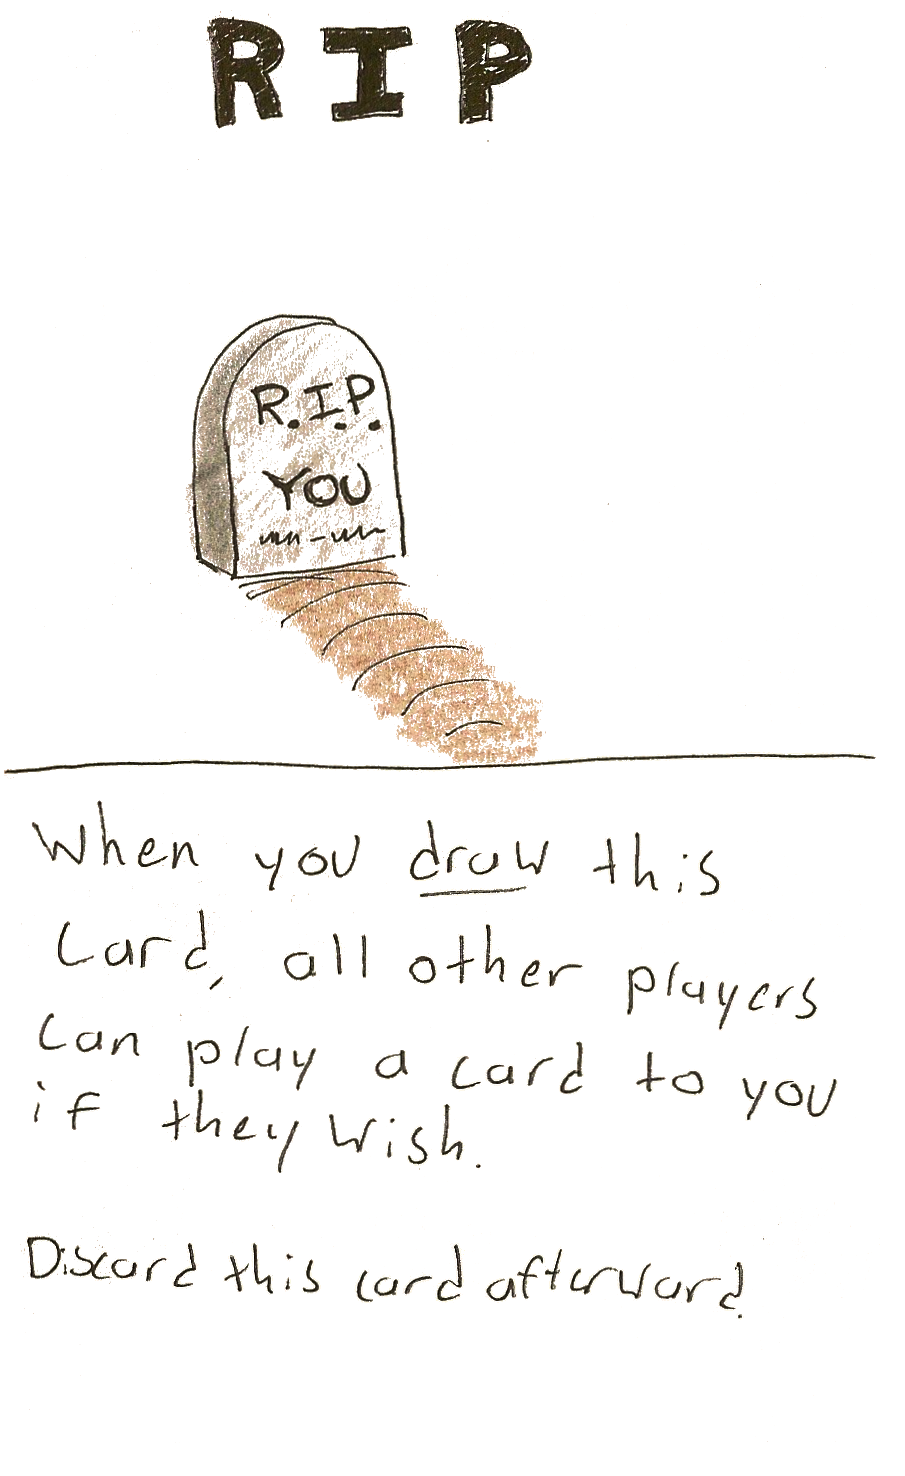 RIP
R.I.P.
YOU
When you draw this
Card, all other players
Can play a card to you
if they wish.
Discard this card afterward.